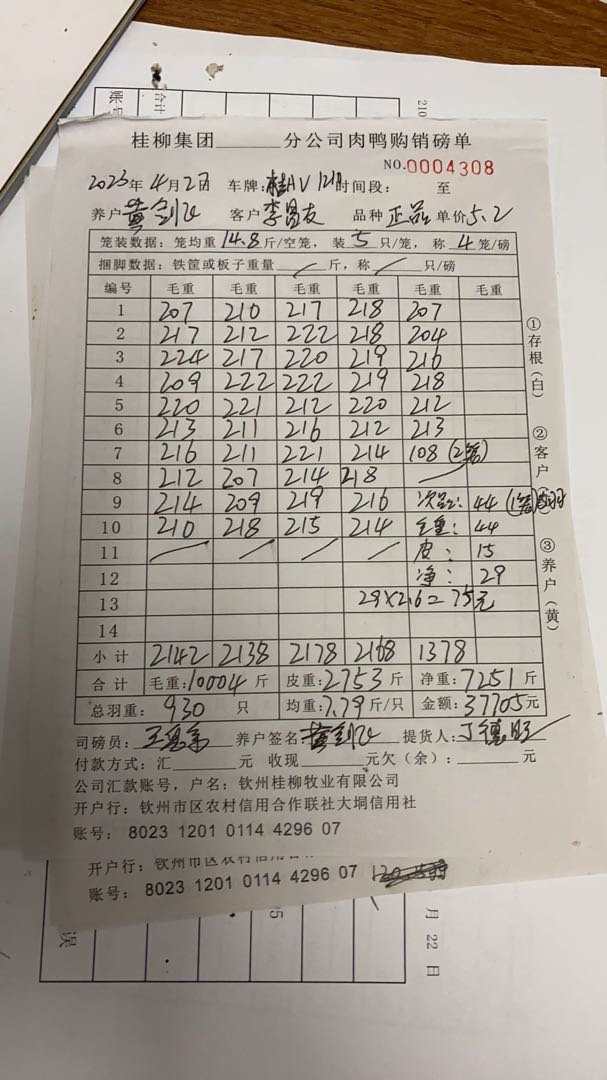 桂柳集团______分公司肉鸭购销磅单
NO.0004308
2023年4月2日 车牌:桂AV1210 时间段: 至
养户 黄剑 客户 李昌友 品种 正品 单价5.2
笼装数据:笼均重14.8斤/空笼,装5只/笼,称4笼/磅
捆脚数据:铁筐或板子重量 / 斤,称 / 只/磅
编号 毛重 毛重 毛重 毛重 毛重 毛重
1 207 210 217 218 207
2 217 212 222 218 204
3 224 217 220 219 216
4 209 222 222 219 218
5 220 221 212 220 212
6 213 211 216 212 213
7 216 211 221 214 108(2笼)
8 212 207 214 218
9 214 209 219 216 次品: 44(1笼)
10 210 218 215 214 毛重: 44
11 皮: 15
12 净: 29
13 29×2.6=75元
14
小计 2142 2138 2178 2168 1378
合计 毛重:10004斤 皮重:2753斤 净重:7251斤
总羽重: 930 只 均重:7.79斤/只 金额:37705元
司磅员: 养户签名 黄剑 提货人: 丁德旺
付款方式:汇____元 收现____元欠(余):____元
公司汇款账号,户名:钦州桂柳牧业有限公司
开户行:钦州市区农村信用合作联社大垌信用社
账号:8023 1201 0114 4296 07
①存根(白) ②客户 ③养户(黄)
开户行:钦州市区农村信用合
账号:8023 1201 0114 4296 07
月 22 日
误
账号
合计
210